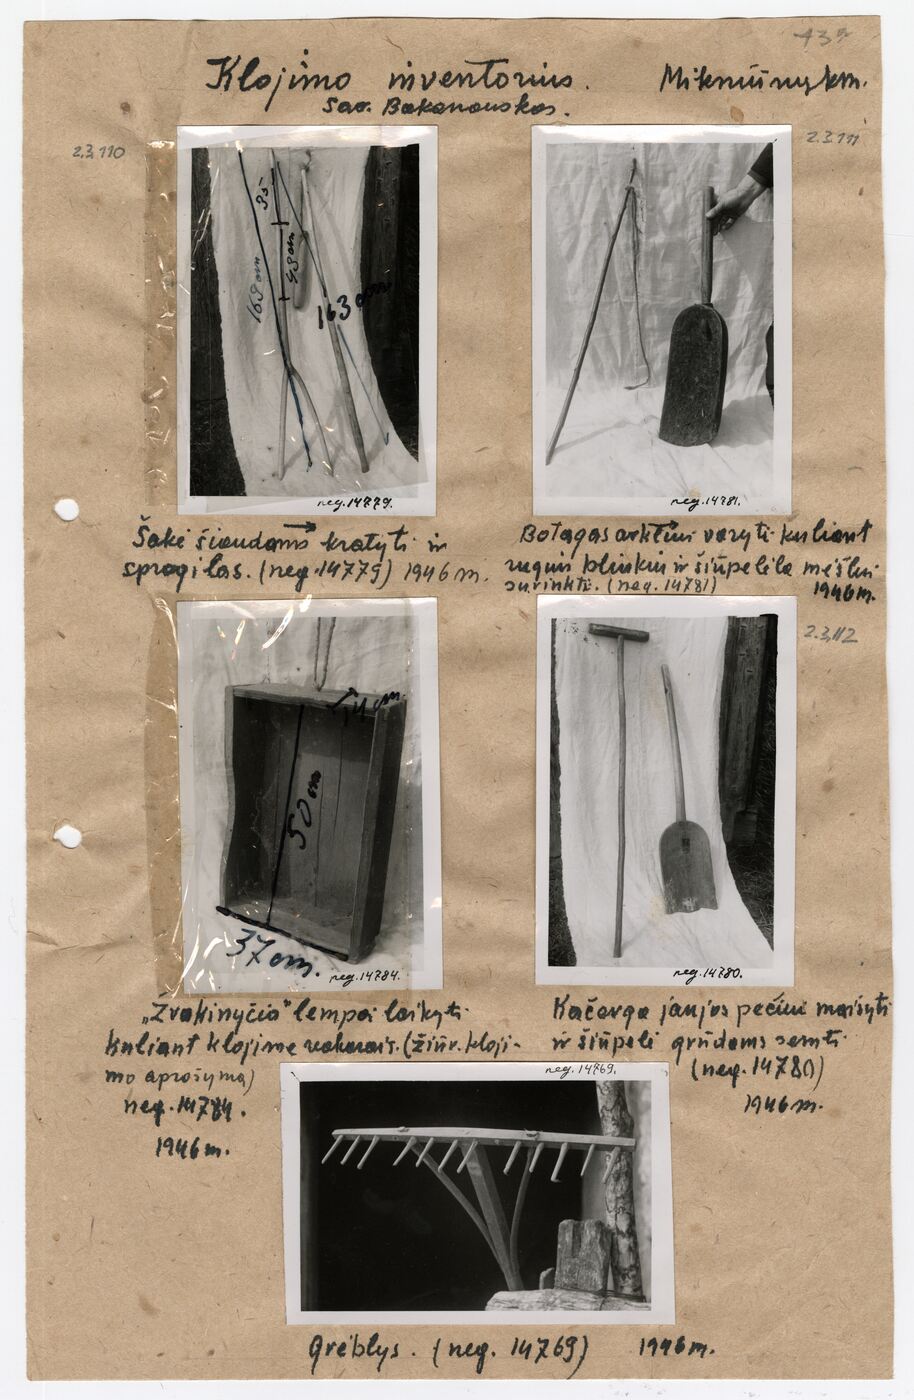 43a
Klojimo inventorius. Mikniūnų km.
Sav. Bakanauskas.
2.3.110
2.3.111
35
48 cm
169 cm
163 cm
neg. 14779.
neg. 14781.
Šakė šiaudams kratyti ir
spragilas. (neg. 14779) 1946 m.
Botagas arkliui varyti kuliant
ir šiūpelila mėšlui
surinkti. (neg. 14781) 1946 m.
2.3.112
14 cm.
50 cm
37 cm.
neg. 14784.
neg. 14780.
„Žvakinyčia" lempai laikyti
kuliant klojime vakarais. (žiūr. kloji-
mo aprašymą)
neg. 14784.
1946 m.
Kačerga jaujos pečiui maišyti
ir šiūpeli grūdams semti
(neg. 14780)
1946 m.
neg. 14769.
Grėblys. (neg. 14769) 1946 m.